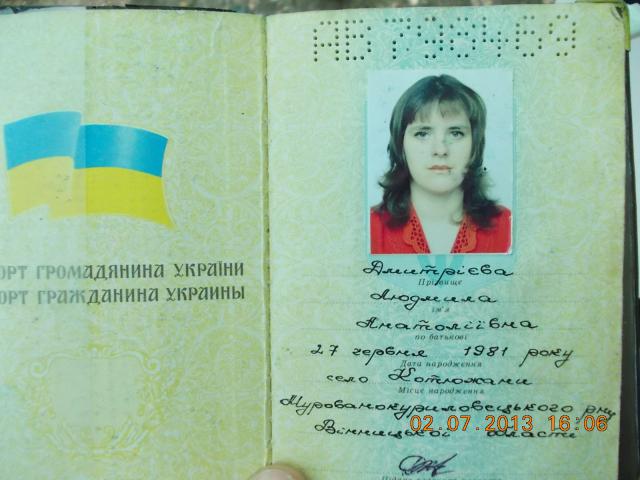 ОРТ ГРОМАДЯНИНА УКРАЇНИ
ОРТ ГРАЖДАНИНА УКРАИНЫ
АВ 798469
Дмитрієва
Прізвище
Людмила
ім'я
Анатоліївна
по батькові
27 червня 1981 року
Дата народження
село Котюжани
Місце народження
Мурованокуриловецького р-ну
Вінницької області
02.07.2013 16:06